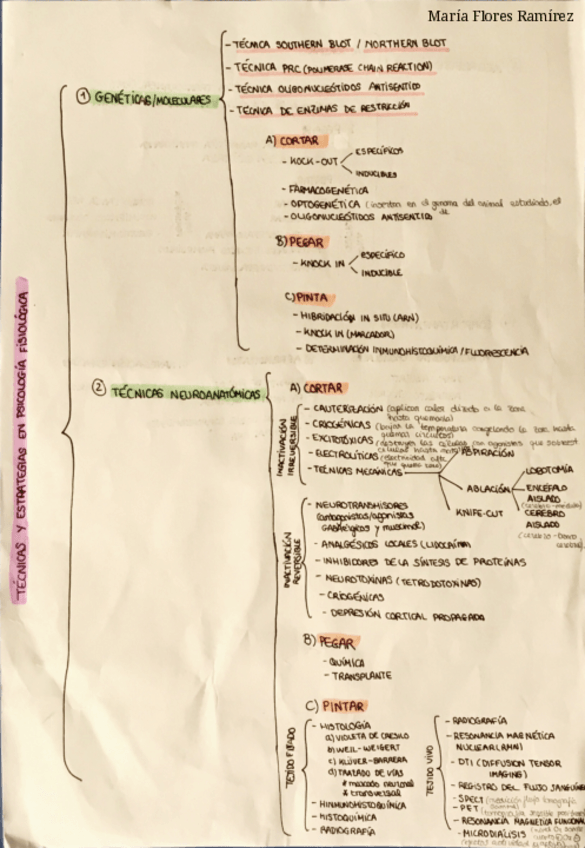 María Flores Ramírez
TÉCNICAS Y ESTRATEGIAS EN PSICOLOGÍA FISIOLÓGICA
① GENÉTICAS/MOLECULARES
- TÉCNICA SOUTHERN BLOT / NORTHERN BLOT
- TÉCNICA PRC (POLIMERASE CHAIN REACTION)
- TÉCNICA OLIGONUCLEÓTIDOS ANTISENTIDO
- TÉCNICA DE ENZIMAS DE RESTRICCIÓN
A) CORTAR
- KOCK-OUT
ESPECÍFICOS
INDUCIBLES
- FARMACOGENÉTICA
- OPTOGENÉTICA (insertan en el genoma del animal estudiado, el
- OLIGONUCLEÓTIDOS ANTISENTIDO
B) PEGAR
- KNOCK IN
ESPECÍFICO
INDUCIBLE
C) PINTA
- HIBRIDACIÓN IN SITU (ARN)
- KNOCK IN (MARCADOR)
- DETERMINACIÓN INMUNOHISTOQUÍMICA / FLUORESCENCIA
② TÉCNICAS NEUROANATÓMICAS
A) CORTAR
INACTIVACIÓN IRREVERSIBLE
- CAUTERIZACIÓN (aplican calor directo a la zona
hasta quemarla)
- CRIOGÉNICAS (bajar la temperatura congelando la zona hasta
- EXCITOTÓXICAS (destruyen las células con agonistas que
- ELECTROLÍTICAS (electricidad
- TÉCNICAS MECÁNICAS
ASPIRACIÓN
ABLACIÓN
LOBOTOMÍA
ENCÉFALO
AISLADO
KNIFE-CUT
CEREBRO
AISLADO
INACTIVACIÓN REVERSIBLE
- NEUROTRANSMISORES
(antagonistas/agonistas
GABAérgicos y muscimol)
- ANALGÉSICOS LOCALES (LIDOCAÍNA
- INHIBIDORES DE LA SÍNTESIS DE PROTEÍNAS
- NEUROTOXINAS (TETRODOTOXINAS)
- CRIOGÉNICAS
- DEPRESIÓN CORTICAL PROPAGADA
B) PEGAR
- QUÍMICA
- TRANSPLANTE
C) PINTAR
TEJIDO FIJADO
- HISTOLOGÍA
a) VIOLETA DE CRESILO
b) WEIL-WEIGERT
c) KLÜVER-BARRERA
d) TRAZADO DE VÍAS
* marcado neuronal
* transversal
- HINMUNOHISTOQUÍMICA
- HISTOQUÍMICA
- RADIOGRAFÍA
TEJIDO VIVO
- RADIOGRAFÍA
- RESONANCIA MAGNÉTICA
NUCLEAR (RMN)
- DTI (DIFFUSION TENSOR
IMAGING)
- REGISTRO DEL FLUJO SANGUÍNE
- SPECT
- PET
- RESONANCIA MAGNÉTICA FUNCIONAL
- MICRODIÁLISIS